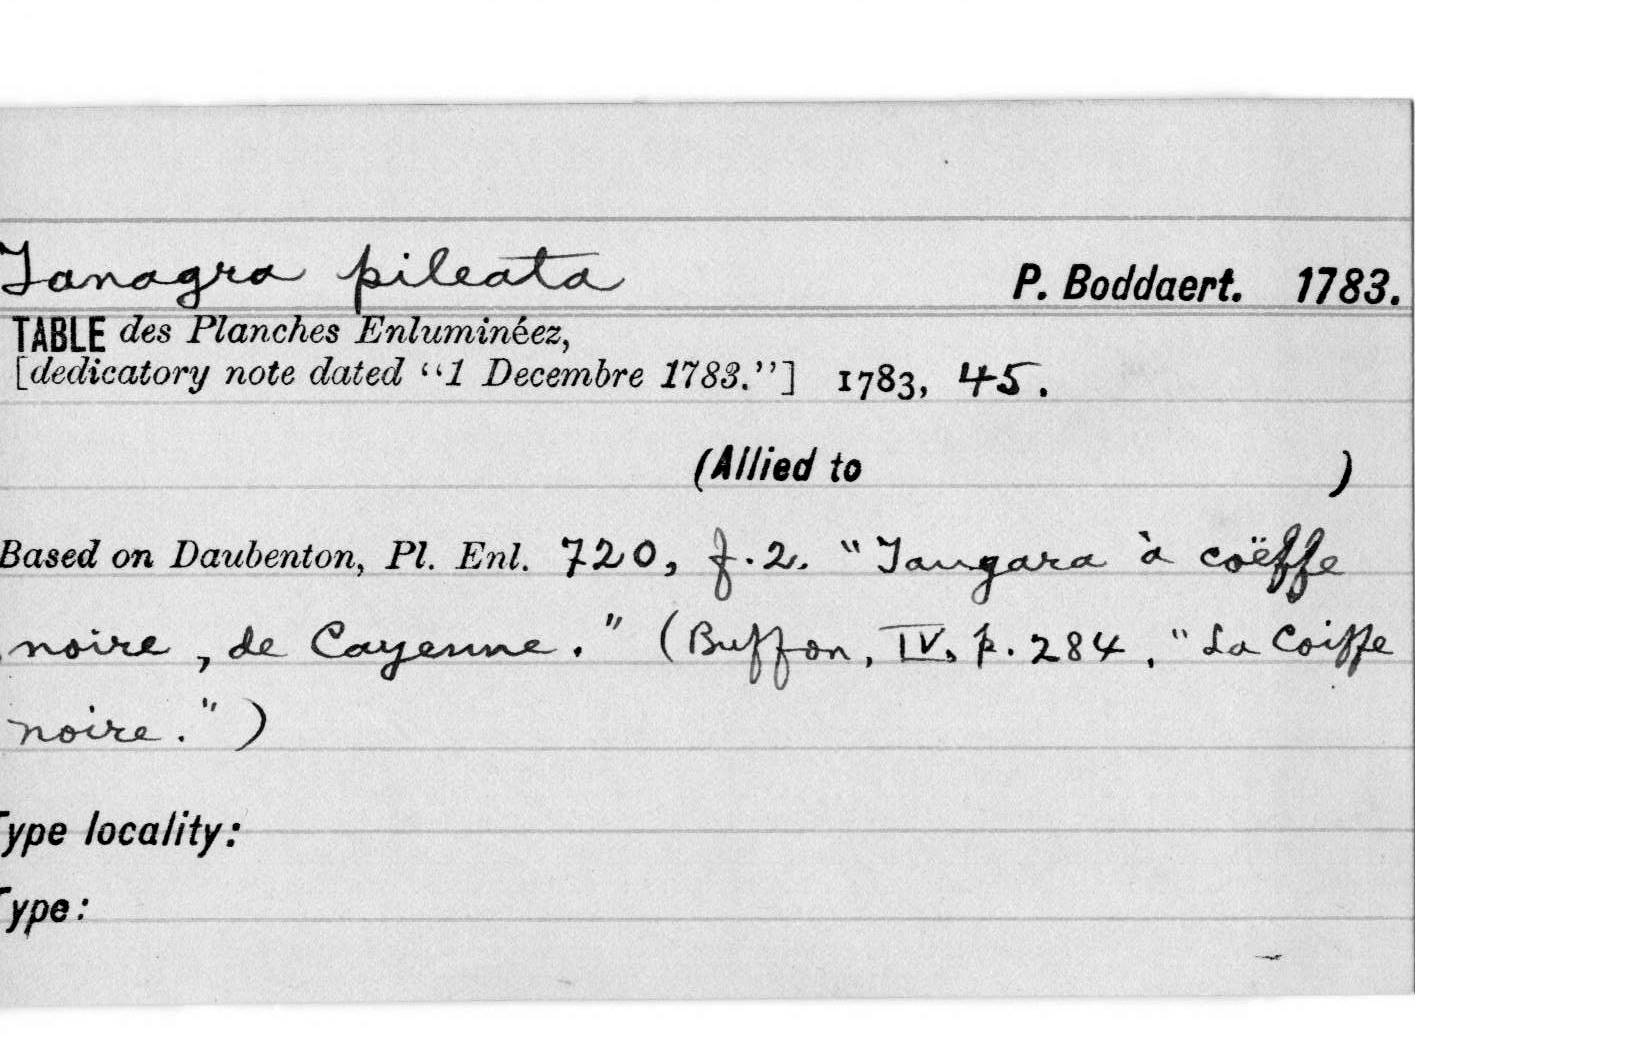 Tanagra pileata P. Boddaert. 1783.
TABLE des Planches Enluminéez,
[dedicatory note dated “1 Decembre 1783.”] 1783, 45.
(Allied to )
Based on Daubenton, Pl. Enl. 720, f.2. "Tangara à coëffe
noire, de Cayenne." (Buffon, IV, p. 284, "La Coiffe
noire.")
Type locality:
Type: